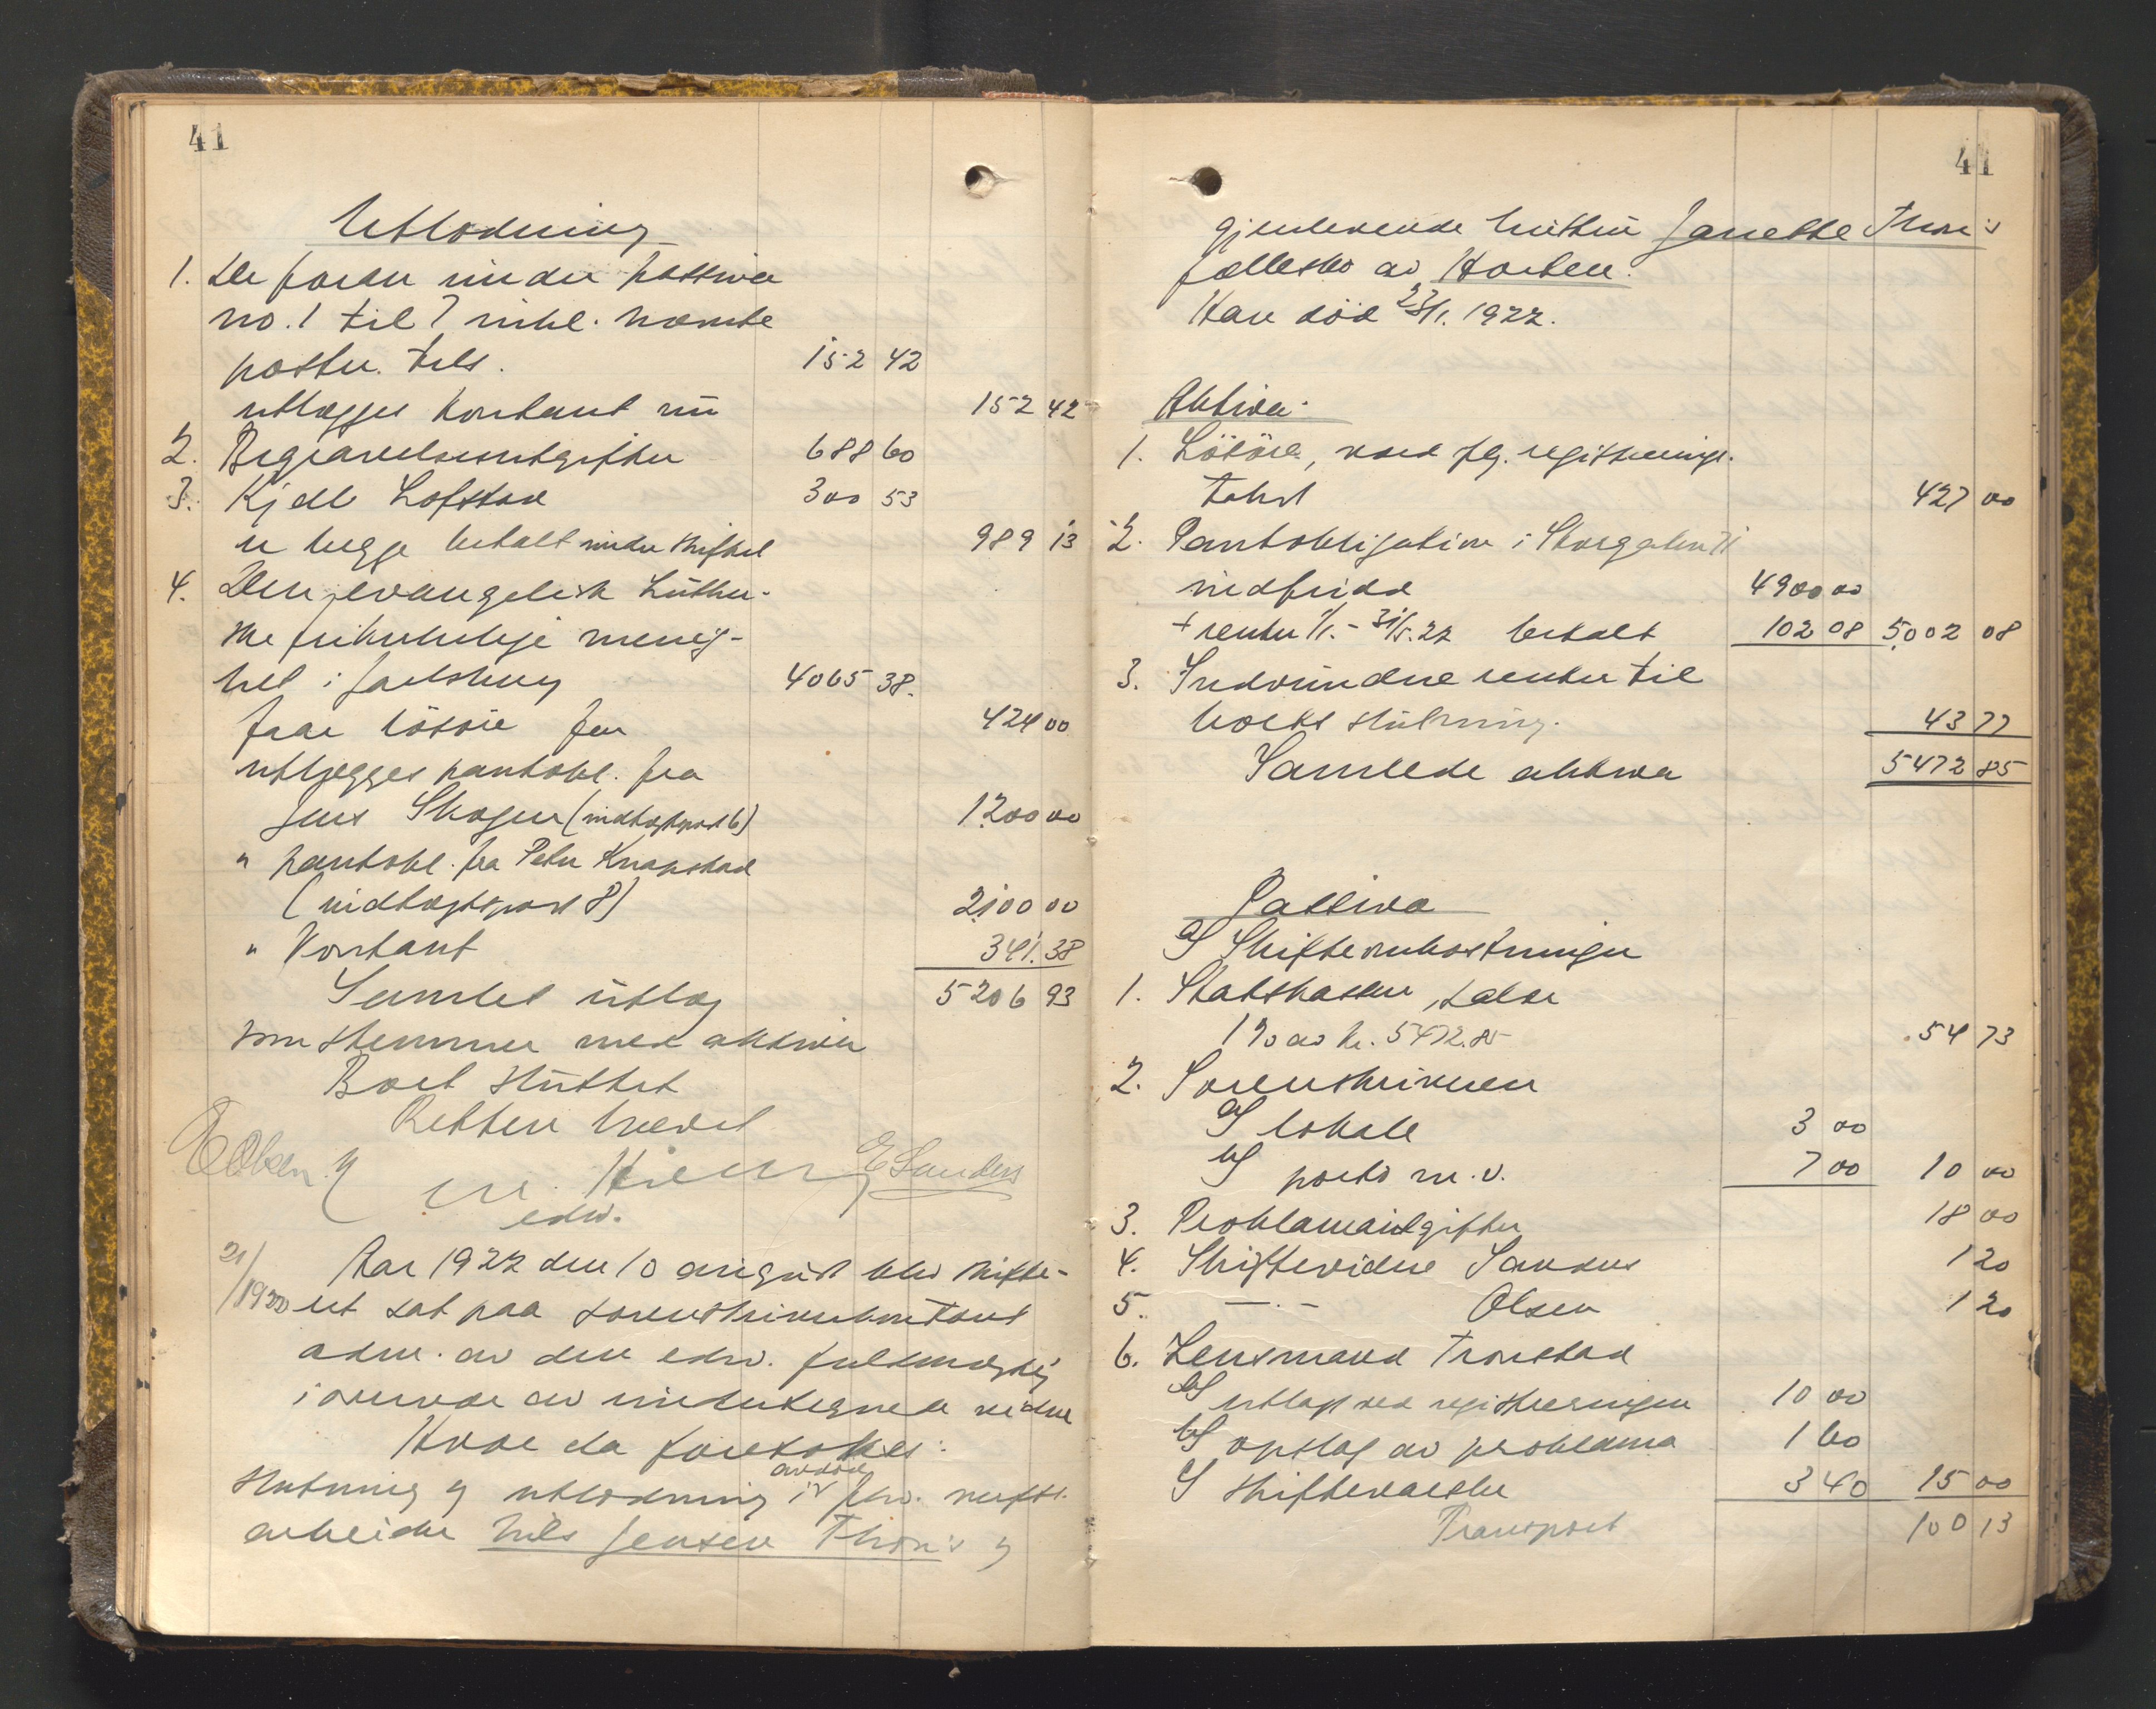 41
Utlodning
1. De foran under passiva
no. 1 til 7 inkl. nævnte
poster tils. 152 42
utlægges kontant nu 152 42
2. Begravelsesutgifter 688 60
3. Kjell Lofstad 300 53
er begge betalt under skiftet 989 13
4. Den evangelisk Luther-
ske frikirkelige menig-
het i Jarlsberg 4065 38.
faar løsøre for 424 00
utlægges pantobl. fra
Jens Skogen (indtægtspost 6) 1200 00
" pantobl. fra Peter Knapstad
(indtægtspost 8) 2100 00
" Kontant 341.38
Samlet utlæg 5206 93
som stemmer med aktiva
Boet sluttet
Retten hævet
E Olsen E Sanders
edsv.
21/1922 Aar 1922 den 10 august blev skifte-
ret sat paa sorenskriverkontoret
adm. av den edsv. fuldmægtig
i overvær av undertegnede vidne
Hvor da foretokes:
avdøde
Slutning og utlodning i fhv.
arbeider Nils Jensen Thon's og
41
gjenlevende hustru Janette Thon's
fællesbo av Horten.
Han død 23/1. 1922.
Aktiva.
1. Løsøre, værd flg. registrerings-
takst 427 00
2. Pantobligation i Storgaten 71
indfridd 4900 00
+ renter 1/1. - 31/5. 22 betalt 102 08 5002 08
3. Indvundne renter til
boets slutning. 43 77
Samlede aktiva 5472 85
Passiva
a/ Skifteomkostninger
1. Statskassen, salær
1 % av kr. 5472.85 54 73
2. Sorenskriveren
a/ lokale 3 00
b/ porto m.v. 7 00 10 00
3. Proklamautgifter 18 00
4. Skiftevidne Sanders 1 20
5. —.— Olsen 1 20
6. Lensmand Tronstad
a/ utlagt ved registreringen 10 00
b/ opslag av proklama 1 60
c/ skiftevarsler 3 40 15 00
Transport 100 13